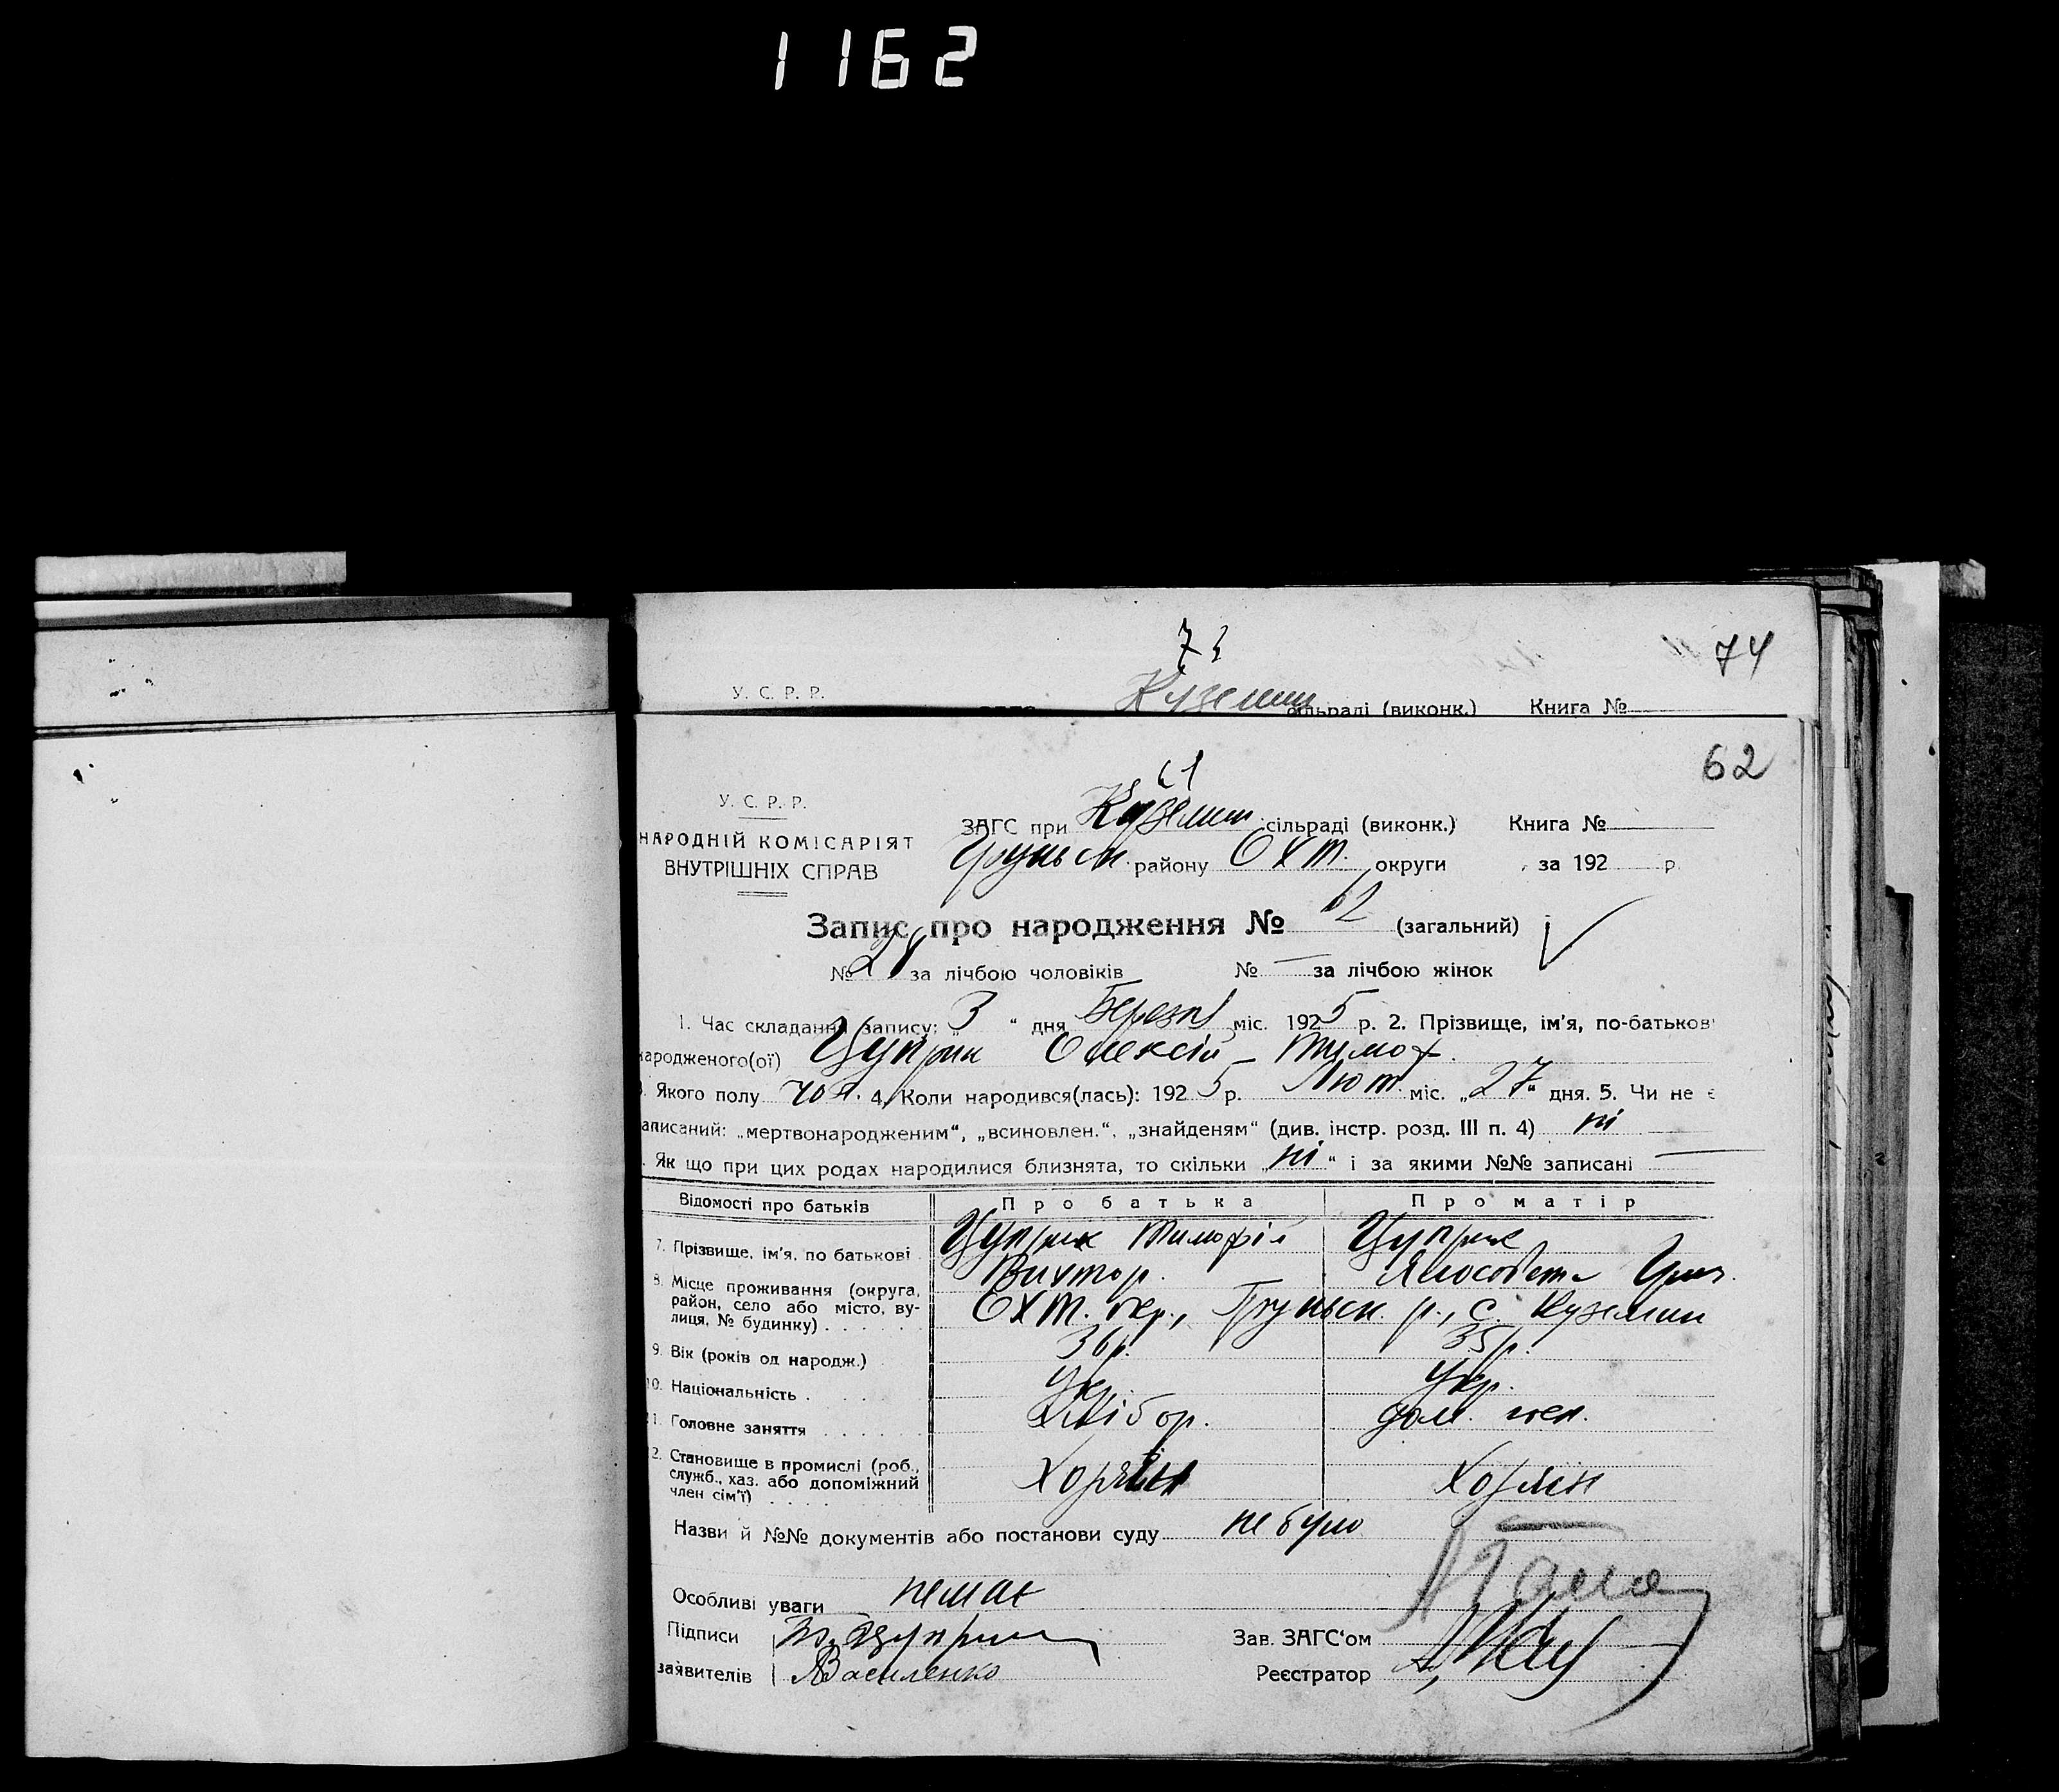 1162
73
74
У. С. Р. Р.
Куземин сільраді (виконк.) Книга №
61
62
У. С. Р. Р.
НАРОДНІЙ КОМІСАРІЯТ
ВНУТРІШНІХ СПРАВ
ЗАГС при Куземин сільраді (виконк.) Книга №
Груньськ. району Охт. округи за 192 р.
Запис про народження № 62 (загальний)
№ 28 за лічбою чоловіків № — за лічбою жінок
1. Час складання запису: „3“ дня Березня міс. 1925 р. 2. Прізвище, ім'я, по-батькові
народженого(ої) Цуприк Олексій Тимоф.
3. Якого полу чол. 4. Коли народився(лась): 1925 р. Лют. міс. „27“ дня. 5. Чи не є
записаний: „мертвонародженим“, „всиновлен.“, „знайденям“ (див. інстр. розд. III п. 4) ні
Як що при цих родах народилися близнята, то скільки „ні“ і за якими №№ записані —
Відомості про батьків Про батька Про матір
7. Прізвище, ім'я, по батькові Цуприк Тимофій Цуприк
Вихтор.
8. Місце проживання (округа, район, село або місто, вулиця, № будинку) Охт. окр., Груньськ. р., с. Куземин
9. Вік (років од народж.) 36 р. 35 р.
10. Національність Укр. Укр.
11. Головне заняття Хлібор. дом. госп.
12. Становище в промислі (роб., служб., хаз. або допоміжний член сім'ї) Хозяїн Хозяїн
Назви й №№ документів або постанови суду не було
Особливі уваги немає
Підписи Т. Цуприк Зав. ЗАГС'ом
заявителів Василенко Реєстратор